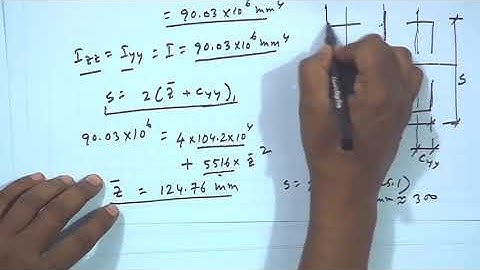 = 90.03×10⁶ mm⁴
I_zz = I_yy = I = 90.03×10⁶ mm⁴
s = 2(z̄ + C_yy)
90.03×10⁶ = 4×104.2×10⁴
+ 5516× z̄²
z̄ = 124.76 mm
s =
mm ≈ 300
s
C_yy